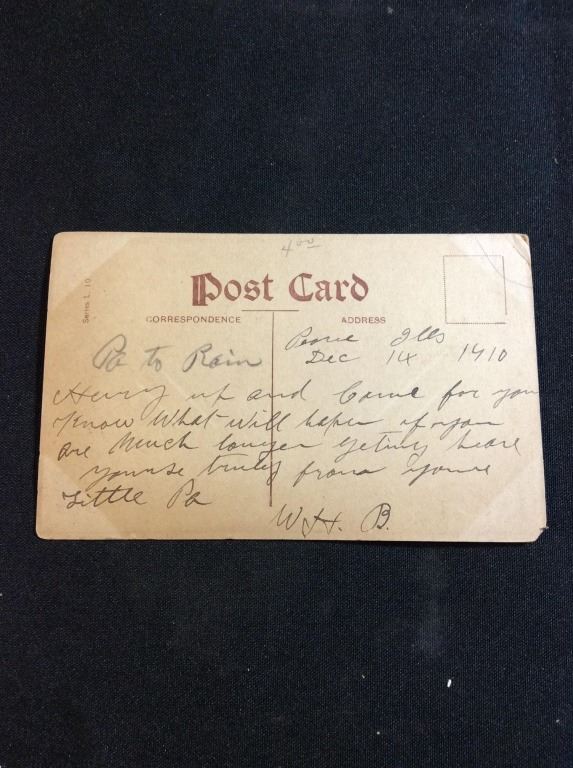 4.00
Post Card
Series L 10
CORRESPONDENCE ADDRESS
Ills
Pa to Rain Dec 14 1910
Hurry up and Come for you
Know What will hapen if you
are Much longer geting heare
yourse truley from youre
Little Pa
W H. B.